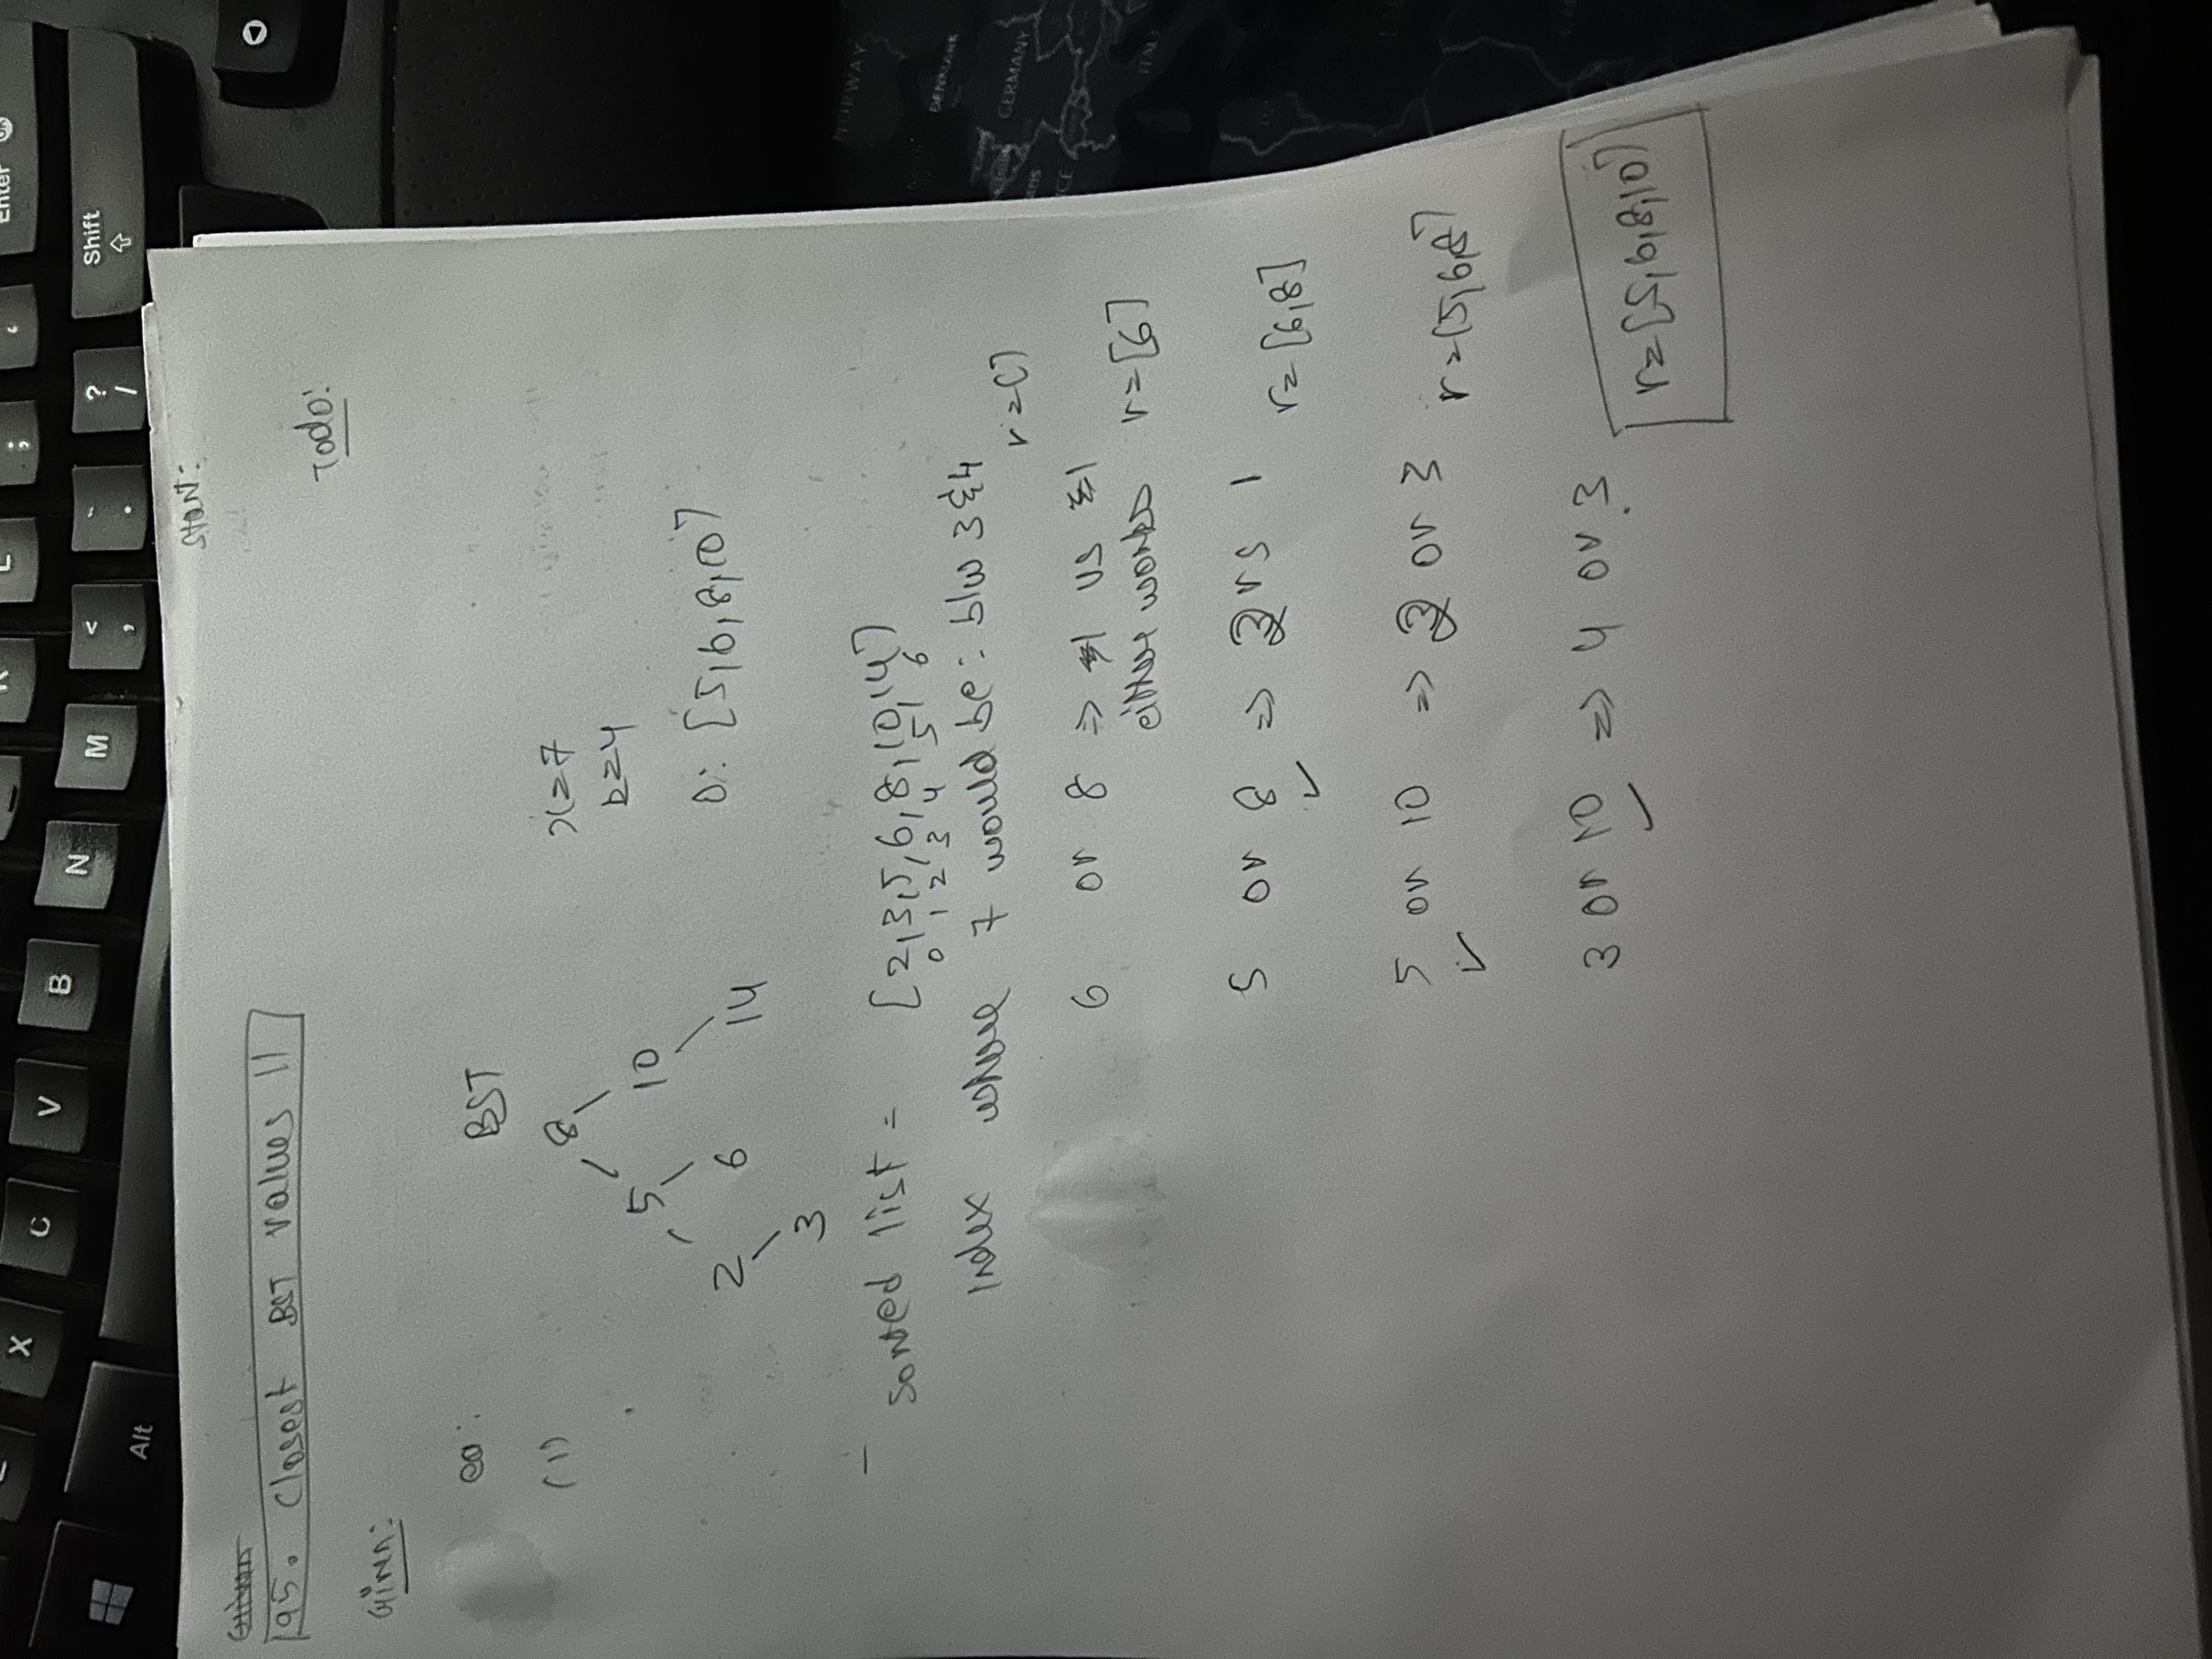 X C V B N M < , . ? / Shift
Enter
Alt
Start:
Given
195. Closest BST values II
Todo:
Given:
eg:
BST
(1)
8
x=7
k=4
5 10
O: [5,6,8,10]
2 6 14
3
- Sorted list = [2,3,5,6,8,10,14]
0 1 2 3 4 5 6
Index where 7 would be: b/w 3 & 4
r=[]
6 or 8 => 1 vs 1
either works r=[6]
5 or 8 => 2 vs 1
✓
r=[6,8]
5 or 10 => 2 or 3
✓
r=[5,6,8]
3 or 10 => 4 or 3
✓
r=[5,6,8,10]
NORWAY
DENMARK
GERMANY
ITALY